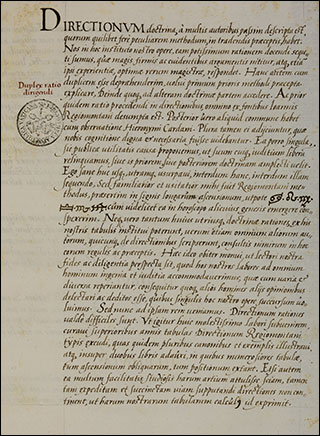 DIRECTIONVM doctrina, à multis autoribus passim descripta est,
quorum quilibet fere peculiarem methodum in tradendis præceptis habet.
Nos in hoc instituto nostro opere, eam potissimum rationem docendi sequu
ti sumus, quæ magis firmis ac euidentibus argumentis nititur, atque, etiam
ipsi experientiæ, optimæ rerum magistræ, respondet. Hanc autem cum
duplicem esse deprehenderim, uolui primum prioris methodi præcepta
Duplex ratio
dirigendi
explicare, Deinde quoque, ad alteram doctrinæ partem accedere. Ac prior
quidem ratio procedendi in directionibus omnino ex fontibus Ioannis
Regiomontani desumpta est. Posterior uero aliquid commune habet
cum obseruatione Hieronymi Cardani. Plura tamen ei adiecimus, quæ
nobis cognitione digna et necessaria fuisse uidebantur. Ea porro singula,
suæ publica utilitatis causa proponemus, ut suum cuique, iuditium liberum
relinquamus, siue is priorem, siue posteriorem doctrinam amplecti uelit.
Ego sane huc usque, utramque, usurpaui, interdum hanc, interdum illam
sequendo. Sed familiarior et usitatior mihi fuit Regiomontani me-
thodus, præsertim in signis longarum ascensionum, utpote
cum uidelicet ea in horoscopo alicuius geneseos emergere con-
spexerim. Neque, uero tantum huius utriusque, doctrinæ rationes, ex his
nostris tabulis institui poterunt, uerum etiam omnium aliorum au-
torum, quicunque, de directionibus scripserunt, consultis nimirum in hoc
eorum regulis ac præceptis. Hæc ideo obiter monui, ut lectori nostra
fides ac diligentia perspecta sit, quod hos nostros labores ad omnium
hominum ingenia et iuditia accommodauerimus, quæ cum uaria et
diuersa reperiantur, consequitur quoque, alios homines alijs opinionibus
delectari ac deditos esse, quibus singulis hoc nostro opere succursum uo-
luimus. Sed nunc ad ipsam rem ueniamus. Directionum rationes
ualde difficiles sunt. Vt igitur huic molestissimo labori subuenirem
curaui superioribus annis tabulas Directionum Regiomontani
typis excudi, quas quidem pluribus canonibus et exemplis illustraui,
atque, insuper duobus libris adauxi, in quibus numerosiores tabulæ,
tum ascensionum obliquarum, tum positionum extant. Etsi autem
ea multum facilitatis studiosis harum artium attulisse sciam, tamen
tam expeditam et succinctam uiam supputandi directiones non con-
tinent, ut harum nostrarum tabularum calculus id exprimit.